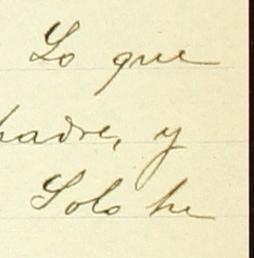 Lo que
padre, y
Solo he